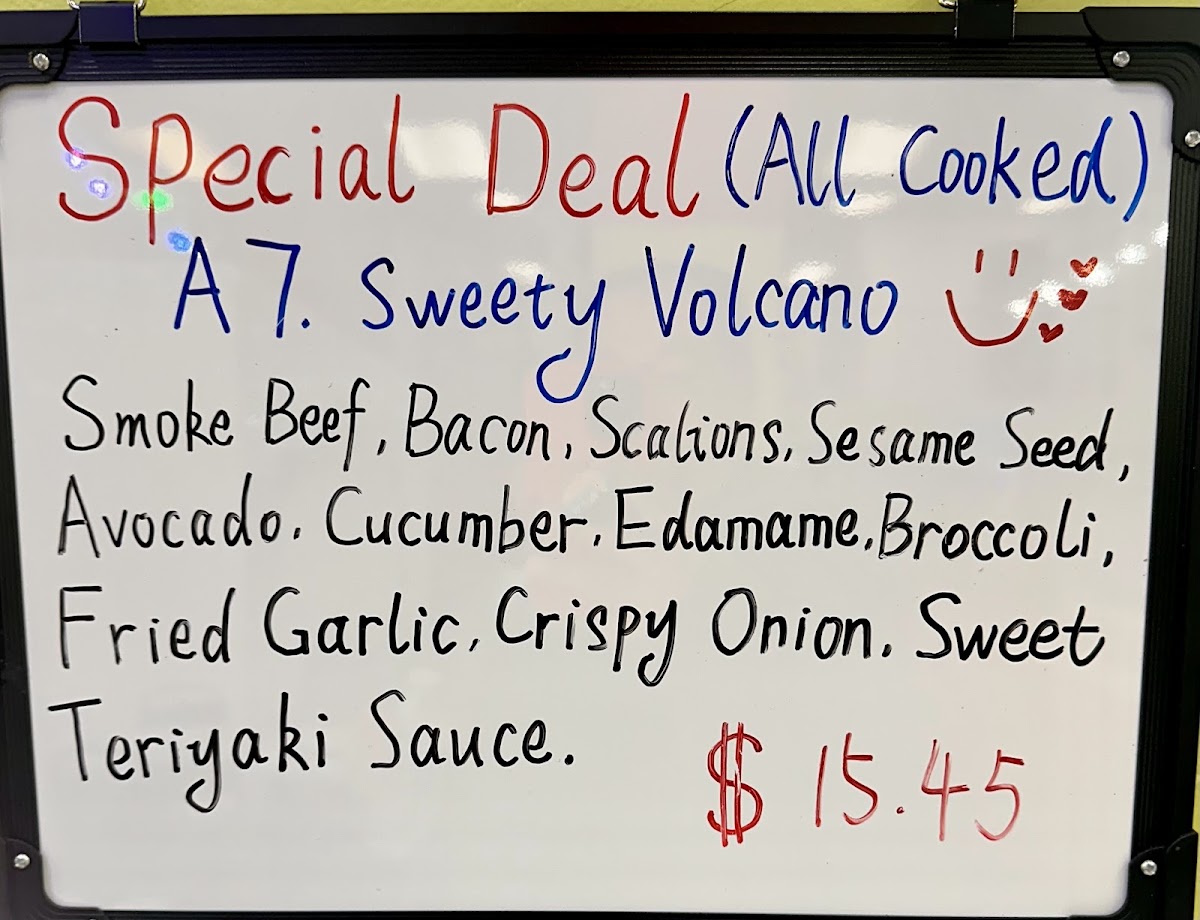 Special Deal (All Cooked)
A7. Sweety Volcano
Smoke Beef, Bacon, Scalions, Sesame Seed,
Avocado. Cucumber. Edamame. Broccoli,
Fried Garlic, Crispy Onion. Sweet
Teriyaki Sauce.
$ 15.45